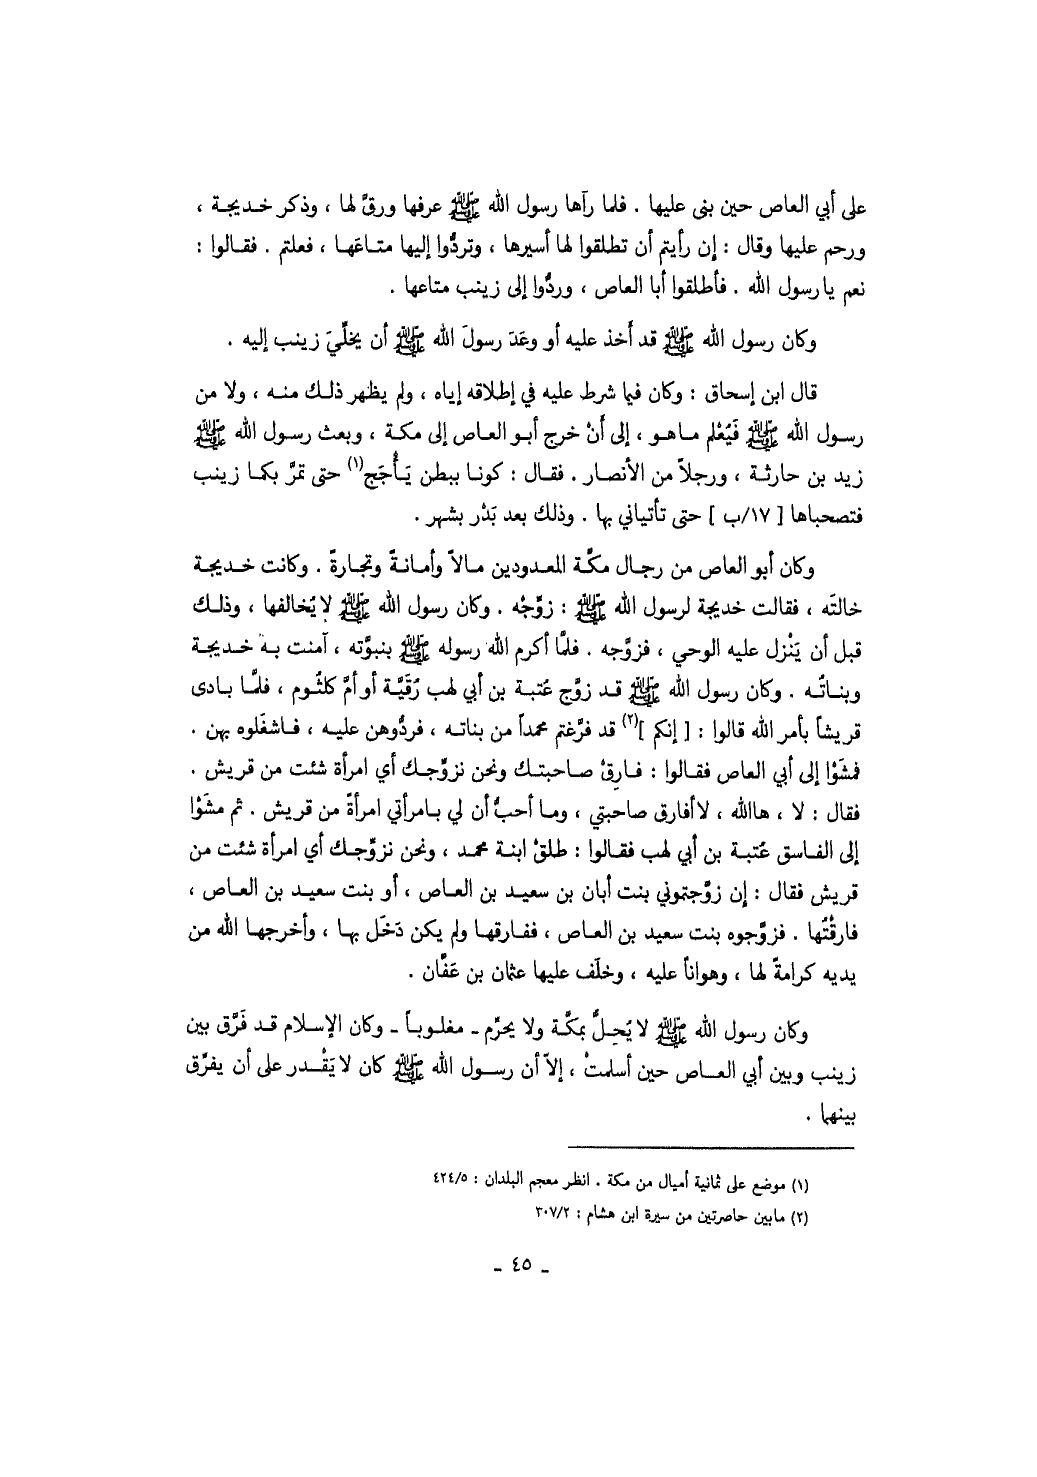 على أبي العاص حين بنى عليها . فلما رآها رسول الله ﷺ عرفها ورقَّ لها ، وذكر خديجة ،
ورحم عليها وقال : إن رأيتم أن تطلقوا لها أسيرها ، وتردُّوا إليها متاعَها ، فعلتم . فقالوا :
نعم يا رسول الله . فأطلقوا أبا العاص ، وردُّوا إلى زينب متاعها .
وكان رسول الله ﷺ قد أَخذ عليه أو وعَدَ رسولَ الله ﷺ أن يخلِّيَ زينب إليه .
قال ابن إسحاق : وكان فيما شرط عليه في إطلاقه إياه ، ولم يظهر ذلك منه ، ولا من
رسول الله ﷺ فَيُعْلم ما هو ، إلى أَنْ خرج أبو العاص إلى مكة ، وبعث رسول الله ﷺ
زيد بن حارثة ، ورجلاً من الأنصار . فقال : كونا ببطن يَأْجَج(١) حتى تمرَّ بكما زينب
فتصحباها [ ١٧/ب ] حتى تأتياني بها . وذلك بعد بَدْر بشهر .
وكان أبو العاص من رجال مكَّة المعدودين مالاً وأمانةً وتجارةً . وكانت خديجة
خالتَه ، فقالت خديجة لرسول الله ﷺ : زوِّجْه . وكان رسول الله ﷺ لا يُخالفها ، وذلك
قبل أن يَنْزل عليه الوحي ، فزوَّجه . فلمَّا أكرم الله رسوله ﷺ بنبوَّته ، آمنت به خديجة
وبناتُه . وكان رسول الله ﷺ قد زوَّج عُتبة بن أبي لهب رُقَيَّة أو أمَّ كلثُوم ، فلمَّا بادى
قريشاً بأمر الله قالوا : [ إنكم ](٢) قد فرَّغتم محمداً من بناته ، فردُّوهن عليه ، فاشغَلوه بهن .
فمشَوْا إلى أبي العاص فقالوا : فارقْ صاحبتك ونحن نزوِّجك أي امرأة شئت من قريش .
فقال : لا ، هاالله ، لا أفارق صاحبتي ، وما أحبُّ أن لي بامرأتي امرأةً من قريش . ثم مشَوْا
إلى الفاسق عُتبة بن أبي لهب فقالوا : طلقْ ابنة محمد ، ونحن نزوِّجك أي امرأة شئت من
قريش فقال : إن زوَّجتموني بنت أبان بن سعيد بن العاص ، أو بنت سعيد بن العاص ،
فارقْتُها . فزوَّجوه بنت سعيد بن العاص ، ففارقها ولم يكن دَخَل بها ، وأخرجها الله من
يديه كرامةً لها ، وهواناً عليه ، وخلَف عليها عثمان بن عَفَّان .
وكان رسول الله ﷺ لا يُحِلُّ بمكَّة ولا يحرِّم ـ مغلوباً ـ وكان الإسلام قد فَرَّق بين
زينب وبين أبي العاص حين أسلمتْ ، إلاّ أن رسول الله ﷺ كان لا يَقْدر على أن يفرِّق
بينهما .
(١) موضع على ثمانية أميال من مكة . انظر معجم البلدان : ٤٢٤/٥
(٢) ما بين حاصرتين من سيرة ابن هشام : ٣٠٧/٢
ـ ٤٥ ـ